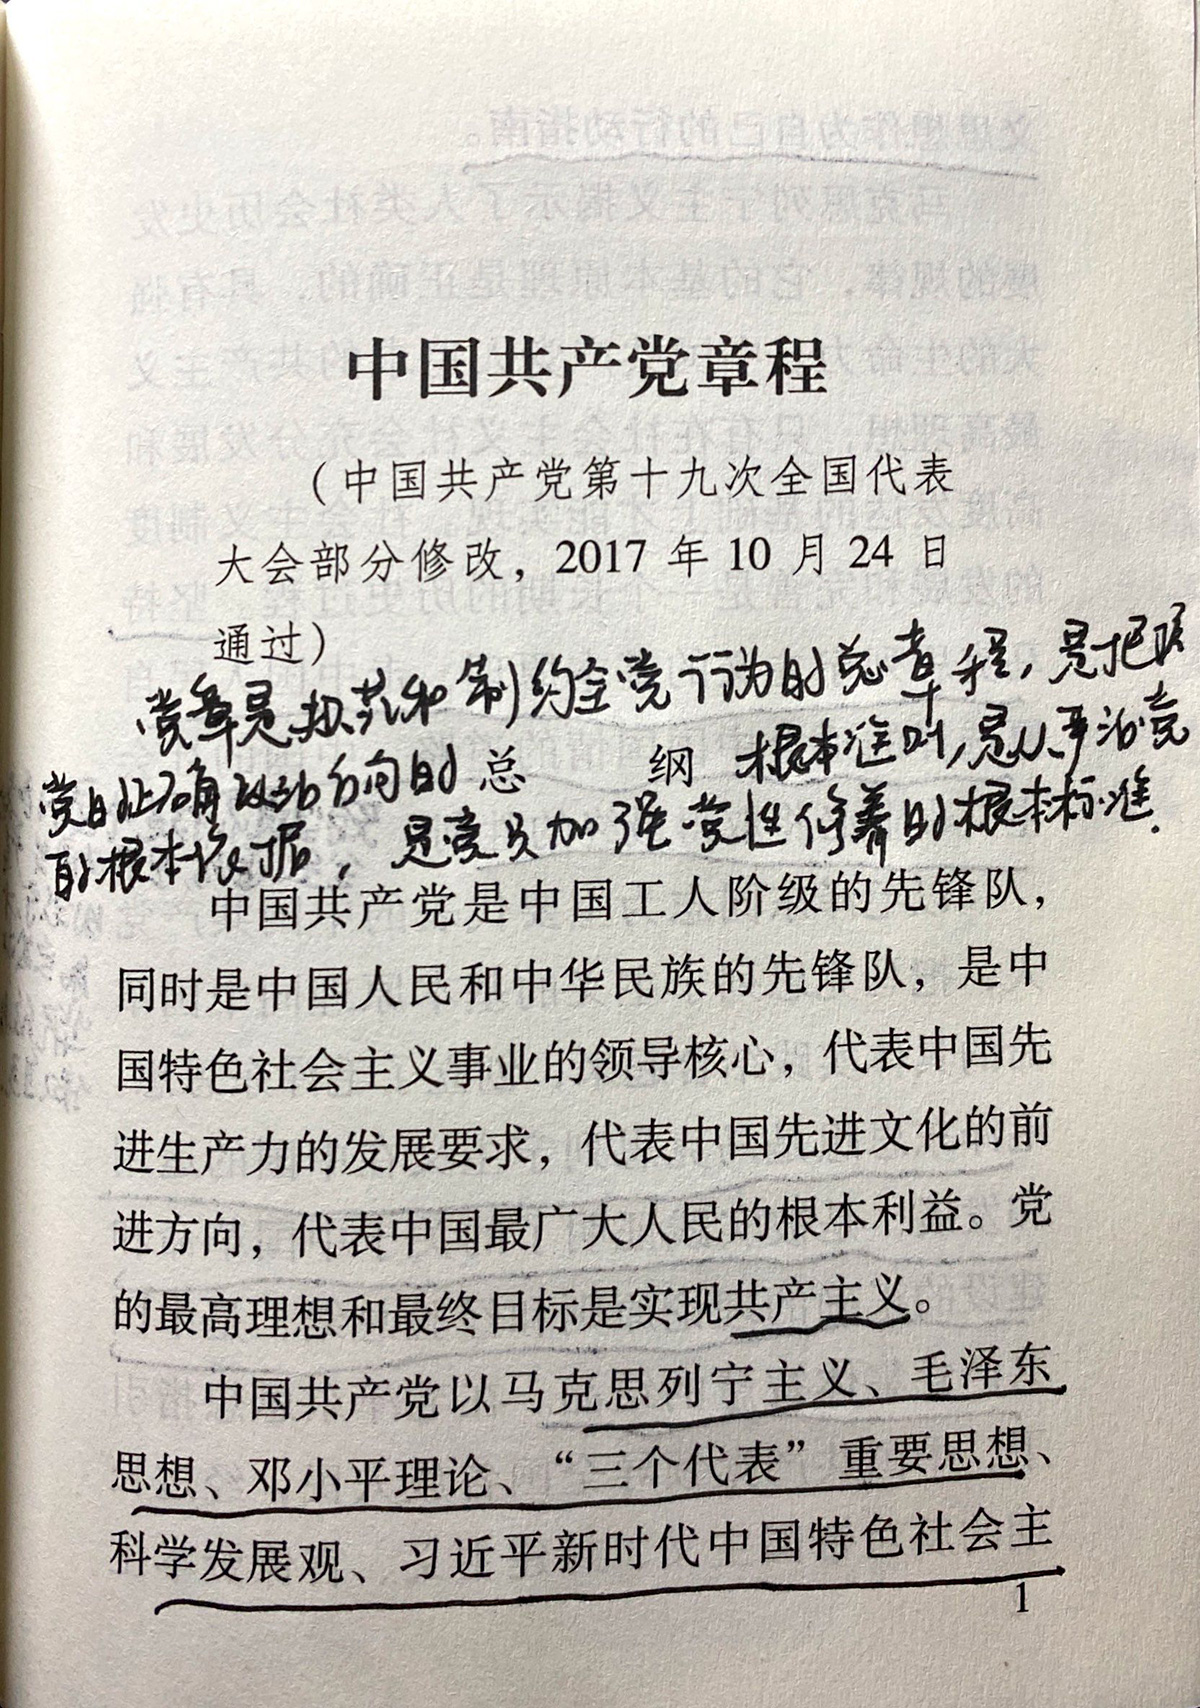 中国共产党章程
（中国共产党第十九次全国代表
大会部分修改，2017 年 10 月 24 日
通过）
党章是规范和制约全党行为的总章程，是把握
党的正确政治方向的根本准则，是从严治党
的根本依据，是党员加强党性修养的根本标准.
总 纲
中国共产党是中国工人阶级的先锋队，
同时是中国人民和中华民族的先锋队，是中
国特色社会主义事业的领导核心，代表中国先
进生产力的发展要求，代表中国先进文化的前
进方向，代表中国最广大人民的根本利益。党
的最高理想和最终目标是实现共产主义。
中国共产党以马克思列宁主义、毛泽东
思想、邓小平理论、“三个代表”重要思想、
科学发展观、习近平新时代中国特色社会主
1